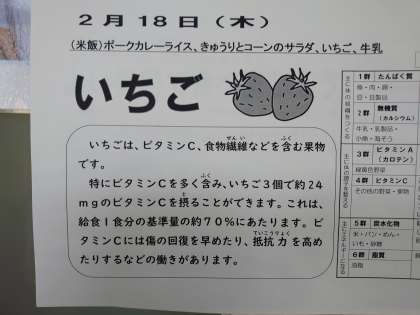 2月18日（木）
（米飯）ポークカレーライス、きゅうりとコーンのサラダ、いちご、牛乳
いちご
いちごは、ビタミンC、食物繊維などを含む果物
です。
特にビタミンCを多く含み、いちご3個で約24
mgのビタミンCを摂ることができます。これは、
給食1食分の基準量の約70％にあたります。ビ
タミンCには傷の回復を早めたり、抵抗力を高め
たりするなどの働きがあります。
せんい
ふく
ふく
と
ていこうりょく
主に体の組織をつくる
1群 たんぱく質
魚・肉・卵・
豆・豆製品
2群 無機質
（カルシウム）
牛乳・乳製品・
小魚・海そう
主に体の調子を整える
3群 ビタミンA
（カロテン）
緑黄色野菜
4群 ビタミンC
その他の野菜・果物
主にエネルギーになる
5群 炭水化物
米・パン・めん・
いも・砂糖
6群 脂質
油脂